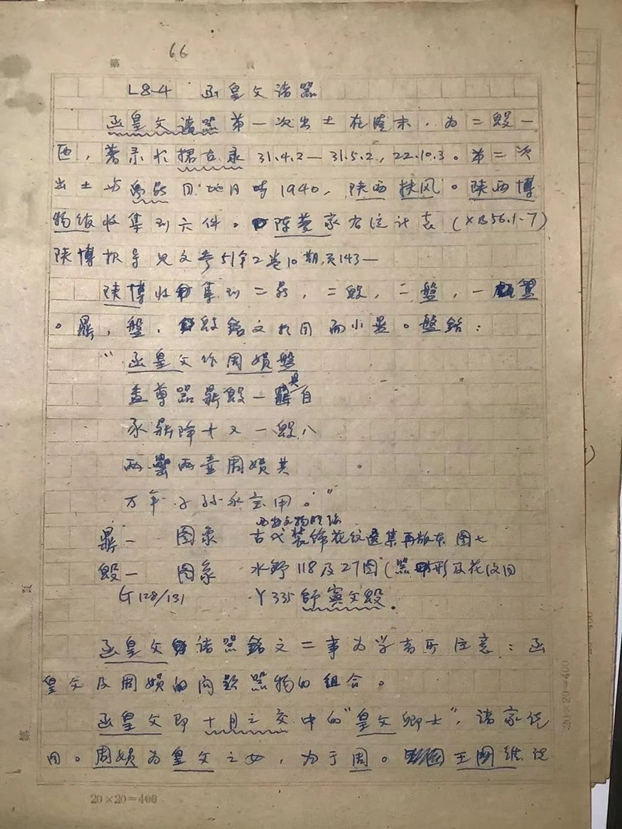 第 66 頁
L8.4 函皇父诸器
函皇父诸器第一次出土在清末，为二毁一
匜，著录于攈古录 31.4.2—31.5.2，22.10.3。第二次
出土 1940，陕西扶风。陕西博
物馆收集到六件。陈梦家有统计表（XB56.1-7）
陕博报导见文参51年2卷10期，页143—
陕博收集到二鼎，二毁，二盘，一
。鼎，盘，毁铭文相同而小异。盘铭：
“函皇父作周娟盘
盉尊器鼎毁一具自
豕鼎降十又一毁八
两罍两壶周娟其
万年子孙永宝用。”
鼎一 图象 古代装饰花纹选集 图七
毁一 图象 水野118及27图（器形及花纹同
G128/131 Y335 父毁。
函皇父诸器铭文二事为学者所注意：函
皇父及周娟的问题器物的组合。
函皇父即十月之交中的“皇父卿士”，诸家说
同。周娟为皇父之女，为于周。王国维说
20×20=400
20×20=400